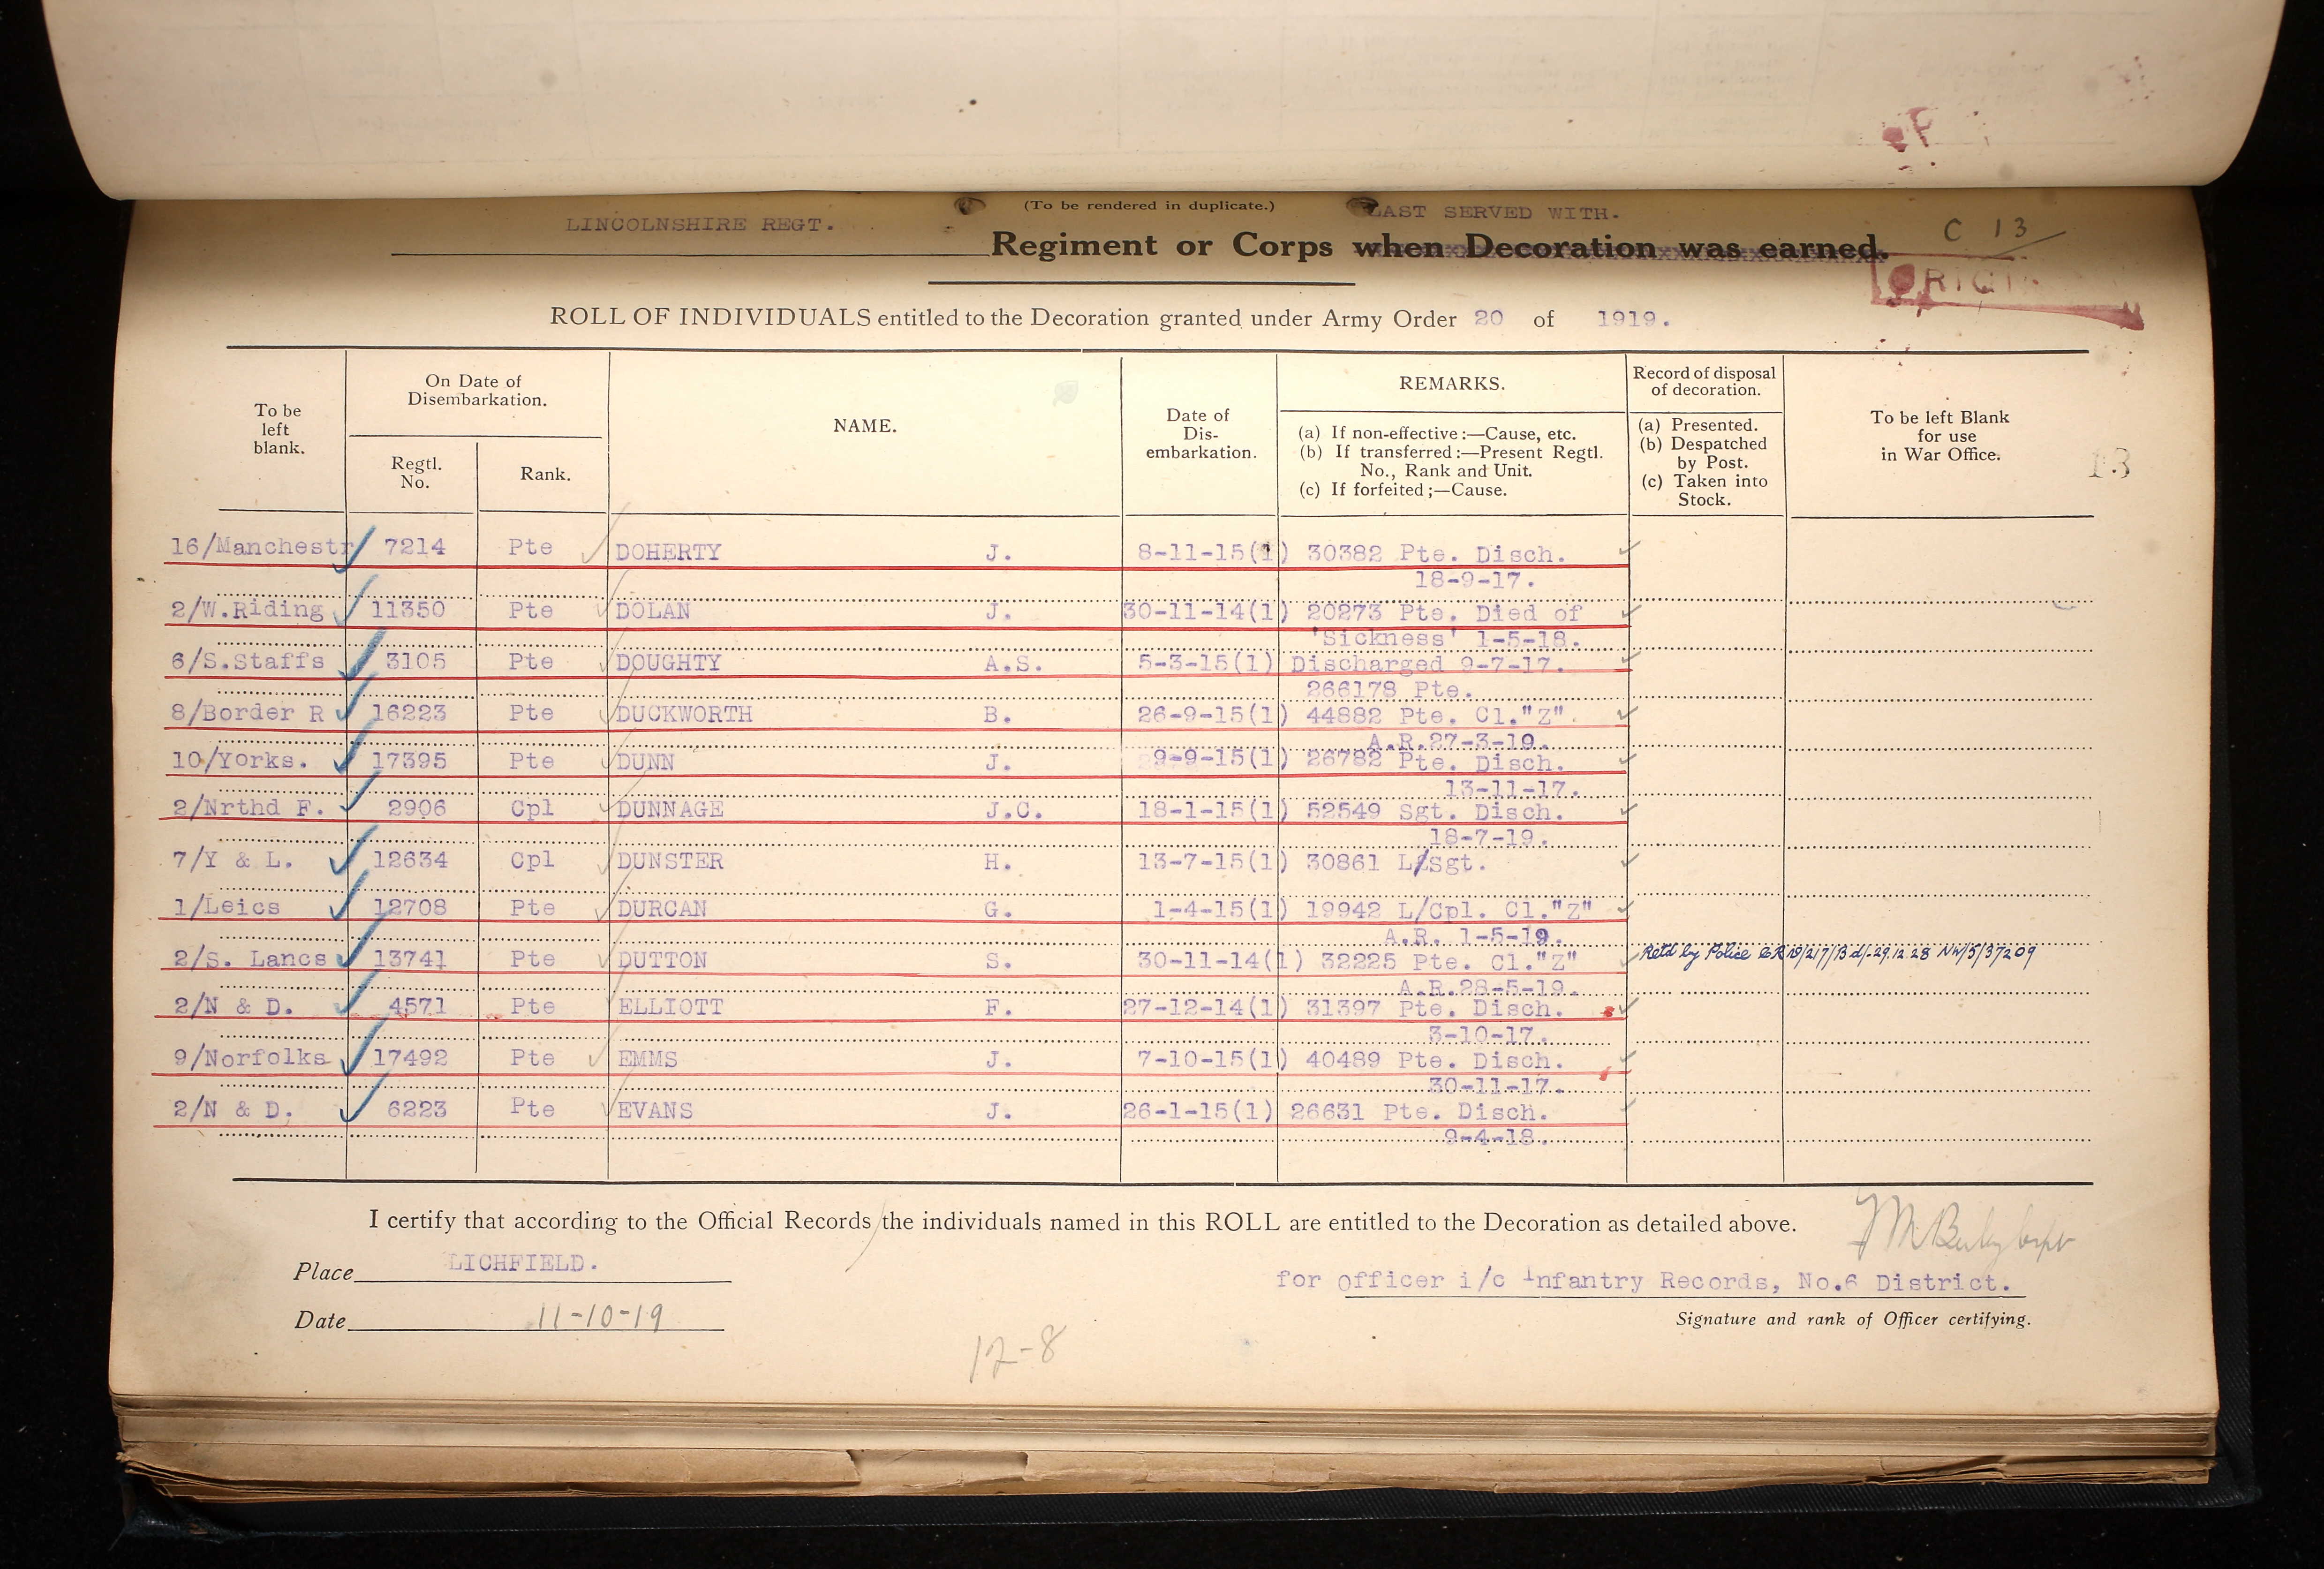 (To be rendered in duplicate.)
LINCOLNSHIRE REGT. LAST SERVED WITH.
Regiment or Corps when Decoration was earned. C 13
ROLL OF INDIVIDUALS entitled to the Decoration granted under Army Order 20 of 1919.
To be left blank.
On Date of Disembarkation.
Regtl. No.
Rank.
NAME.
Date of Dis-
embarkation.
REMARKS.
(a) If non-effective:—Cause, etc.
(b) If transferred:—Present Regtl.
No., Rank and Unit.
(c) If forfeited;—Cause.
Record of disposal
of decoration.
(a) Presented.
(b) Despatched
by Post.
(c) Taken into
Stock.
To be left Blank
for use
in War Office.
13
16/Manchestr 7214 Pte DOHERTY J. 8-11-15(1) 30382 Pte. Disch.
18-9-17.
2/W.Riding 11350 Pte DOLAN J. 30-11-14(1) 20273 Pte. Died of
'Sickness' 1-5-18.
6/S.Staffs 3105 Pte DOUGHTY A.S. 5-3-15(1) Discharged 9-7-17.
266178 Pte.
8/Border R 16223 Pte DUCKWORTH B. 26-9-15(1) 44882 Pte. Cl."Z".
A.R.27-3-19.
10/Yorks. 17395 Pte DUNN J. 9-9-15(1) 26782 Pte. Disch.
13-11-17.
2/Nrthd F. 2906 Cpl DUNNAGE J.C. 18-1-15(1) 52549 Sgt. Disch.
18-7-19.
7/Y & L. 12634 Cpl DUNSTER H. 13-7-15(1) 30861 L/Sgt.
1/Leics 12708 Pte DURCAN G. 1-4-15(1) 19942 L/Cpl. Cl."Z"
A.R. 1-5-19.
2/S. Lancs 13741 Pte DUTTON S. 30-11-14(1) 32225 Pte. Cl."Z" Retd by Police 29.12.28 NW/5/37209
A.R.28-5-19.
2/N & D. 4571 Pte ELLIOTT F. 27-12-14(1) 31397 Pte. Disch.
3-10-17.
9/Norfolks 17492 Pte EMMS J. 7-10-15(1) 40489 Pte. Disch.
30-11-17.
2/N & D. 6223 Pte EVANS J. 26-1-15(1) 26631 Pte. Disch.
9-4-18.
I certify that according to the Official Records the individuals named in this ROLL are entitled to the Decoration as detailed above.
Place LICHFIELD.
for Officer i/c Infantry Records, No.6 District.
Date 11-10-19
Signature and rank of Officer certifying.
12-8